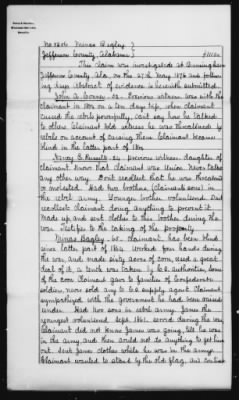 No 5204 Minas Bagley }
Jefferson County Alabama }
This claim was investigated at Birmingham
Jefferson County, Ala. on the 27th May 1876 and following
days. Abstract of evidence is herewith submitted.
John A. 52. Previous witness. was with the
claimant in 1861 on a ten day trip, when claimant
cursed the rebels powerfully, cant say how he talked
to others. Claimant told witness he was threatened by
rebels on account of cursing them. Claimant became
blind in the latter part of 1862
Nancy E. previous witness daughter of
claimant know that claimant was Union Never talked
any other way. Dont recollect that he was threatened
or molested. Had two brothers (claimants sons) in
the rebel army. Younger brother volunteered. Dont
recollect claimant doing anything to prevent it.
Made up and sent clothes to this brother during the
war. Testifies to the taking of the property
Minas Bagley. 68. claimant, has been blind
since latter part of 1862. Worked four hands during
the war, and made sixty acres of corn, used a great
deal of it. a tenth was taken by C.S. authorities, some
of the corn claimant gave to families of Confederate
soldiers, never sold any to C.S. supply agent. Claimant
sympathized with the government he had been raised
under. Had two sons in rebel army. James the
youngest volunteered Sept. 1861. served during the war.
Claimant did not know James was going, till he was
in the army, and then could not do anything to get him
out. Sent James clothes while he was in the army.
Claimant wanted to stand by the old flag, and